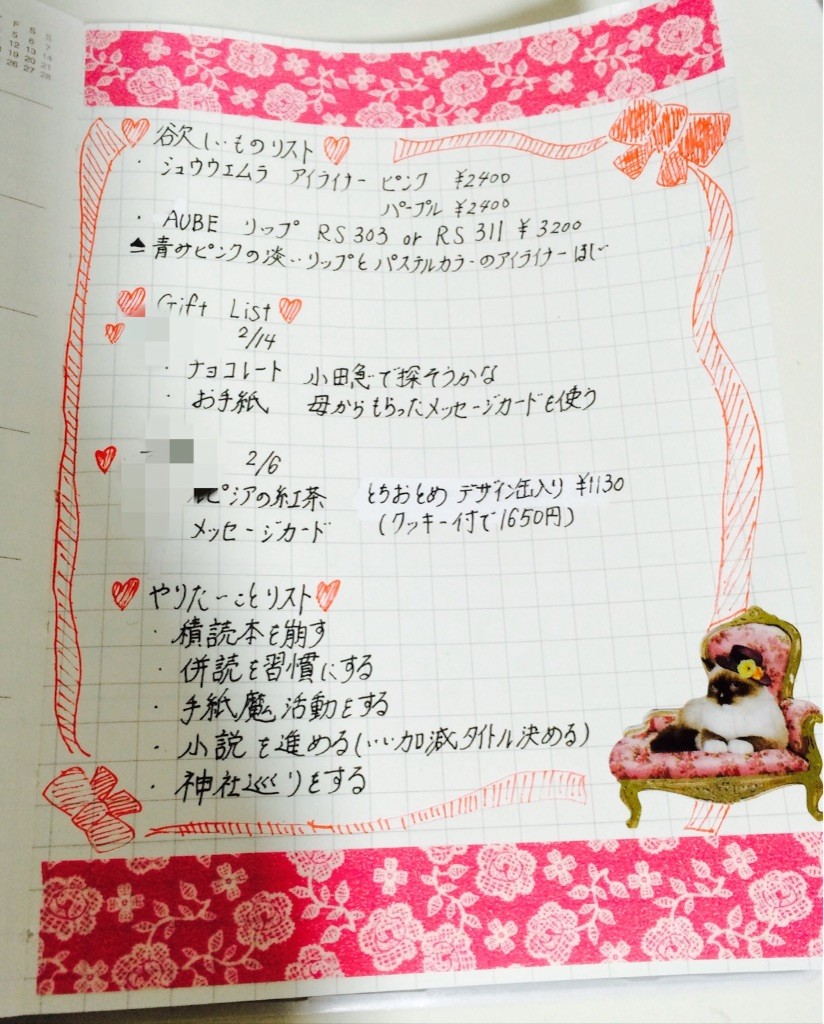 F S S
5 6 7
12 13 14
19 20 21
26 27 28
欲しいものリスト
・シュウウエムラ アイライナー ピンク ¥2400
パープル ¥2400
・AUBE リップ RS303 or RS311 ¥3200
青みピンクの淡いリップとパステルカラーのアイライナーほしい
Gift List
2/14
・チョコレート 小田急で探そうかな
・お手紙 母からもらったメッセージカードを使う
2/6
ルピシアの紅茶 とちおとめ デザイン缶入り ¥1130
メッセージカード (クッキー付で1650円)
やりたいことリスト
・積読本を崩す
・併読を習慣にする
・手紙魔活動をする
・小説を進める(いい加減タイトル決める)
・神社巡りをする